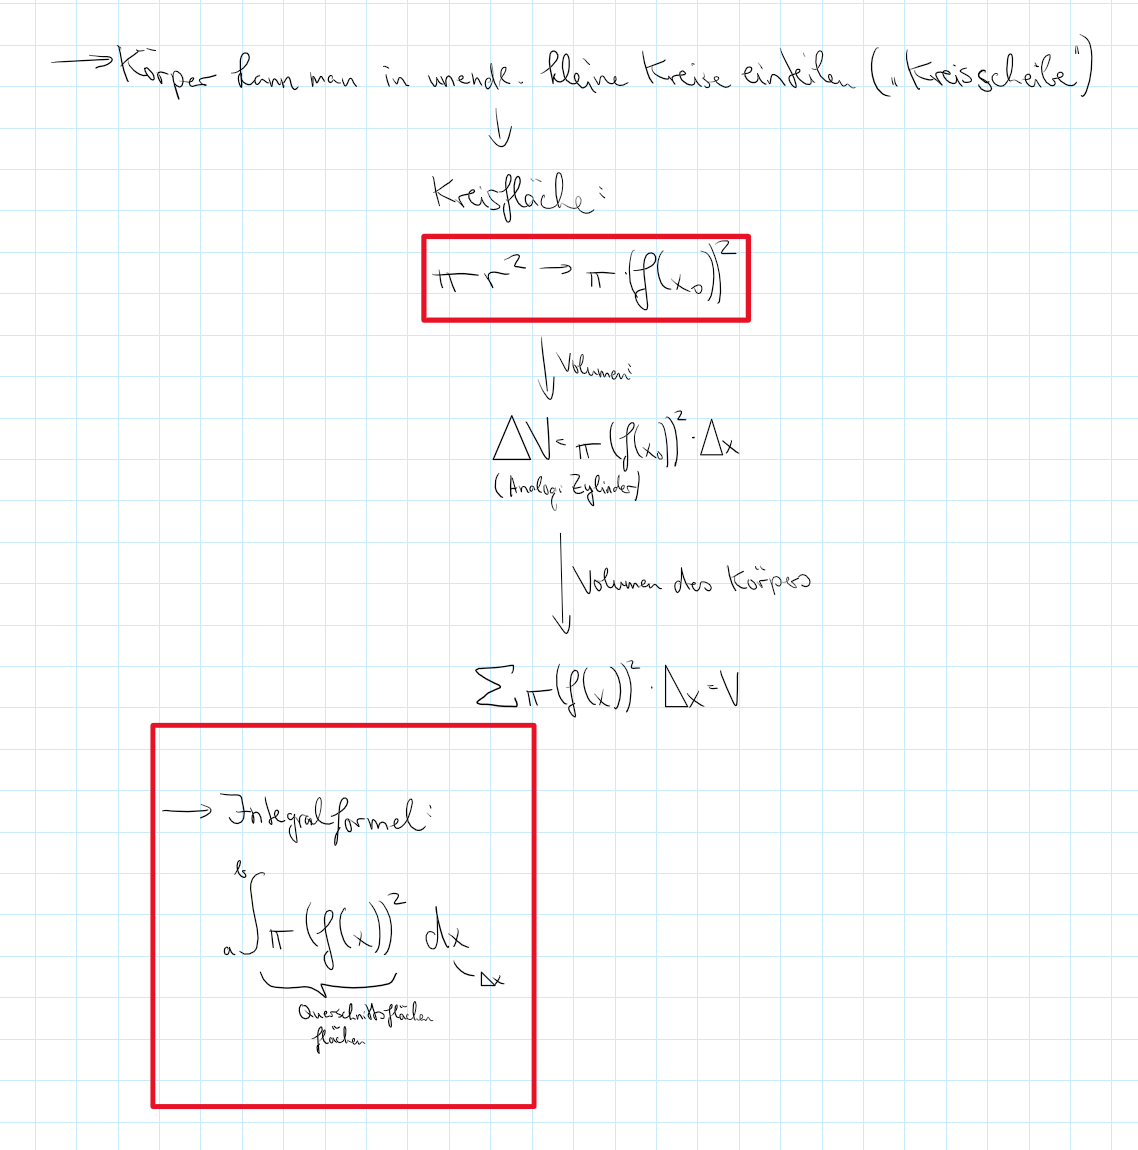 → Körper kann man in unendl. kleine Kreise einteilen („Kreisscheibe")
↓
Kreisfläche:
πr² → π·(f(x₀))²
↓ Volumen:
ΔV = π(f(x₀))²·Δx
(Analog: Zylinder)
↓ Volumen des Körpers
∑π(f(x))²·Δx = V
→ Integralformel:
b
a∫π(f(x))² dx
Δx
Querschnittsflächen
flächen